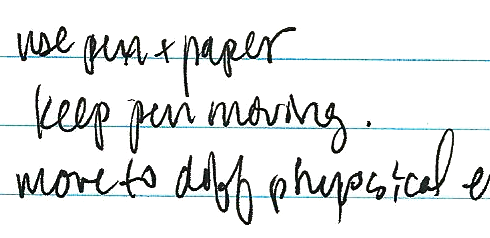 use pen + paper
keep pen moving.
move to diff physical e